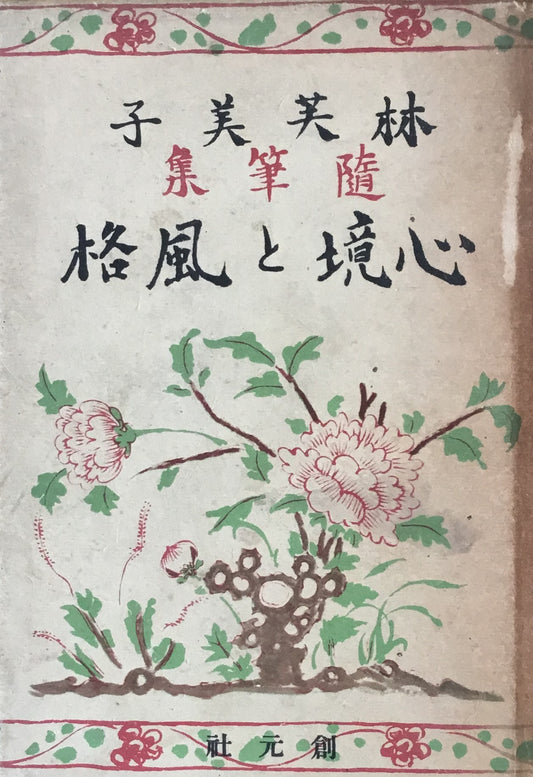 林芙美子
隨筆集
心境と風格
創元社